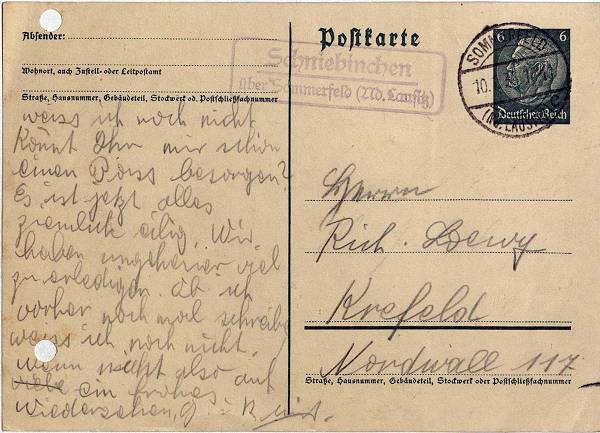 Absender:
Wohnort, auch Zustell- oder Leitpostamt
Straße, Hausnummer, Gebäudeteil, Stockwerk od. Postschließfachnummer
weiss ich noch nicht
Könnt Ihr mir schon
einen besorgen?
Es ist jetzt alles
ziemlich eilig. Wir
haben ungeheuer viel
zu erledigen. Ob ich
vorher noch mal schreibe
weiss ich noch nicht.
wenn nicht also auf
ein frohes
Wiedersehen,
Postkarte
Schniebinchen
über Sommerfeld (Nd. Lausitz)
6 6
Deutsches Reich
SOMMERFELD
10.
(ND. LAUSITZ)
Herrn
Rich. Loewy
Krefeld
Nordwall 117
Straße, Hausnummer, Gebäudeteil, Stockwerk oder Postschließfachnummer